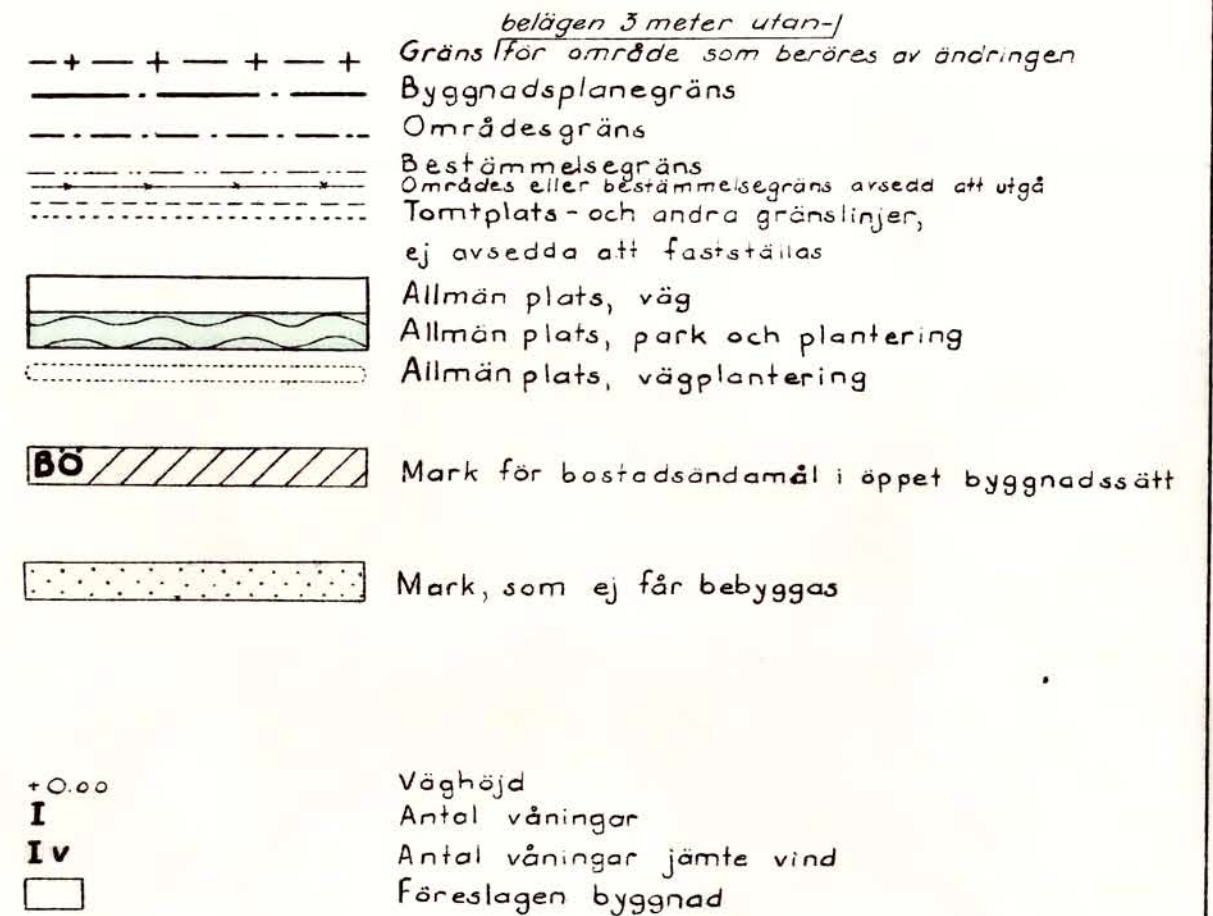 belägen 3 meter utan-
Gräns för område som beröres av ändringen
Byggnadsplanegräns
Områdesgräns
Bestämmelsegräns
Områdes eller bestämmelsegräns avsedd att utgå
Tomtplats- och andra gränslinjer,
ej avsedda att fastställas
Allmän plats, väg
Allmän plats, park och plantering
Allmän plats, vägplantering
BÖ Mark för bostadsändamål i öppet byggnadssätt
Mark, som ej får bebyggas
+0.00 Väghöjd
I Antal våningar
I v Antal våningar jämte vind
Föreslagen byggnad